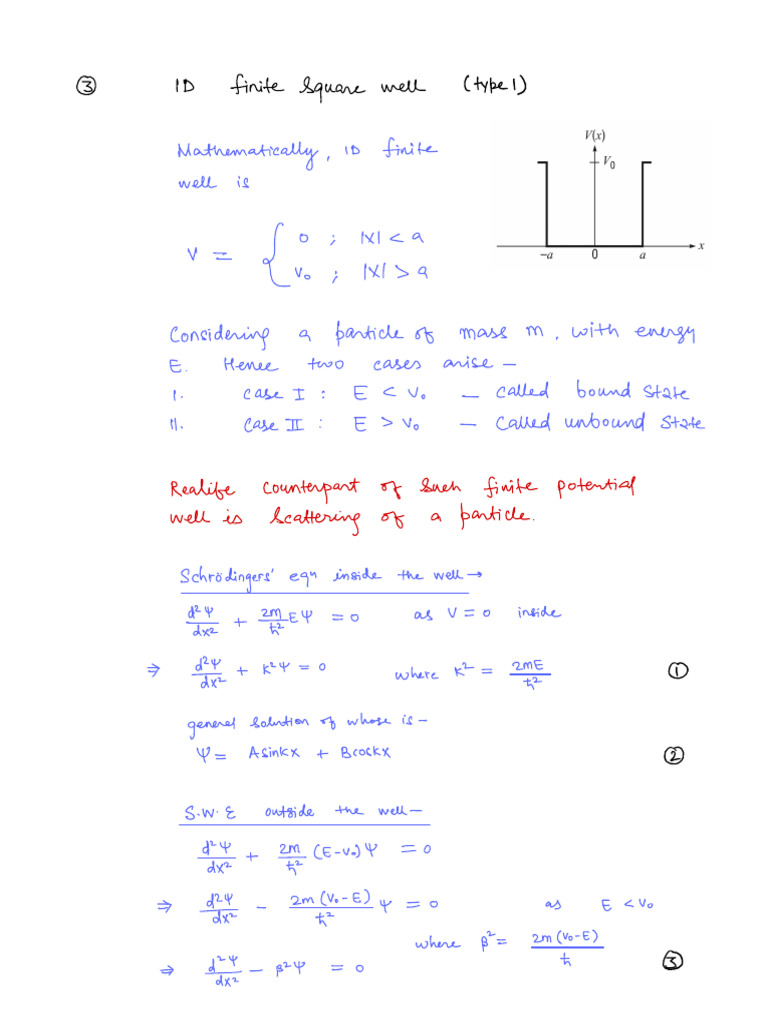 ③ 1D finite square well (type 1)
Mathematically, 1D finite
well is
V = { 0 ; |x| < a
V₀ ; |x| > a
V(x)
V₀
-a 0 a x
Considering a particle of mass m, with energy
E. Hence two cases arise –
I. Case I : E < V₀ – called bound state
II. Case II : E > V₀ – Called unbound state
Realife Counterpart of such finite potential
well is scattering of a particle.
Schrödingers' eqn inside the well →
d²Ψ/dx² + 2m/ħ² EΨ = 0 as V = 0 inside
⇒ d²Ψ/dx² + K²Ψ = 0 where K² = 2mE/ħ² ①
general solution of whose is –
Ψ = Asinkx + Bcoskx ②
S.W.E outside the well –
d²Ψ/dx² + 2m/ħ² (E-V₀)Ψ = 0
⇒ d²Ψ/dx² - 2m(V₀-E)/ħ² Ψ = 0 as E < V₀
⇒ d²Ψ/dx² - β²Ψ = 0 where β² = 2m(V₀-E)/ħ ③